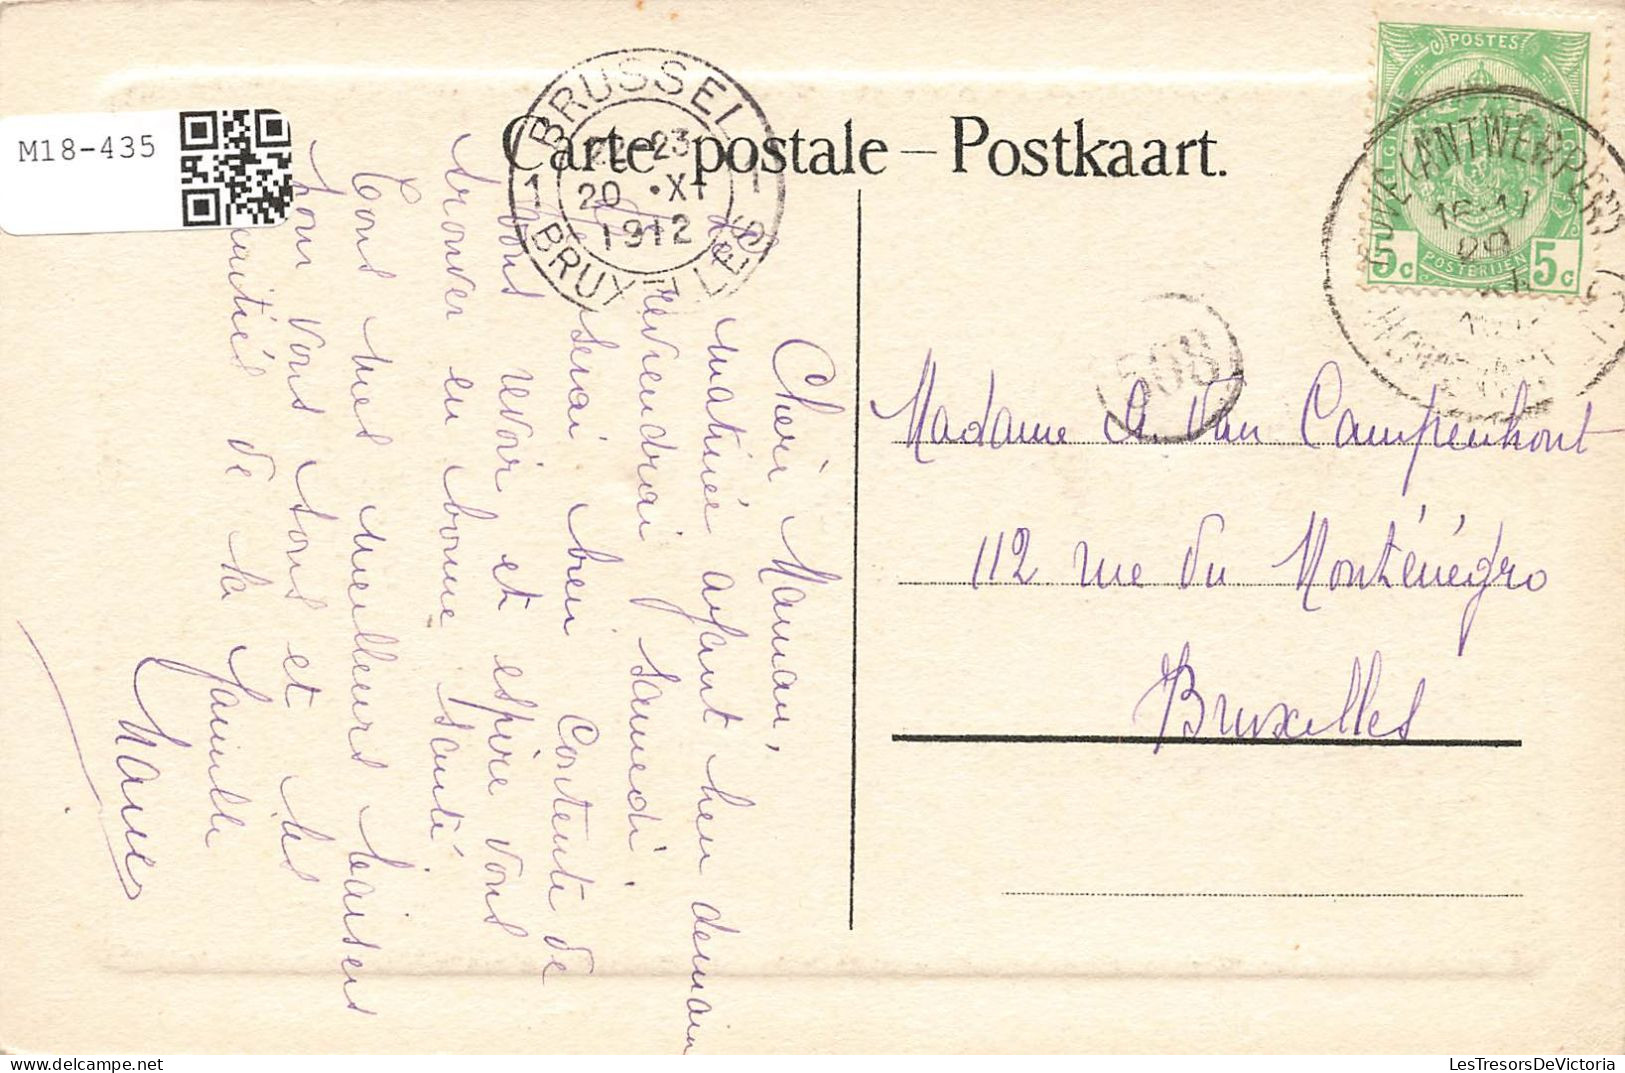 M18-435
Carte postale – Postkaart.
BRUSSEL
1 BRUXELLES 1
22-23
20 • XI
1912
POSTES
BELGIQUE
BELGIE
POSTERIJEN
5c 5c
(ANTWERPEN)
16-17
20
XI
508
Chère Maman,
La matinée ayant lieu demain
je reviendrai samedi
Je serai bien contente de
vous revoir et espère vous
trouver en bonne santé
Tous mes meilleurs baisers
pour vous tous et les
amitiés de la famille
Madame A. Van Campenhout
112 rue du Monténégro
Bruxelles
LesTresorsDeVictoria